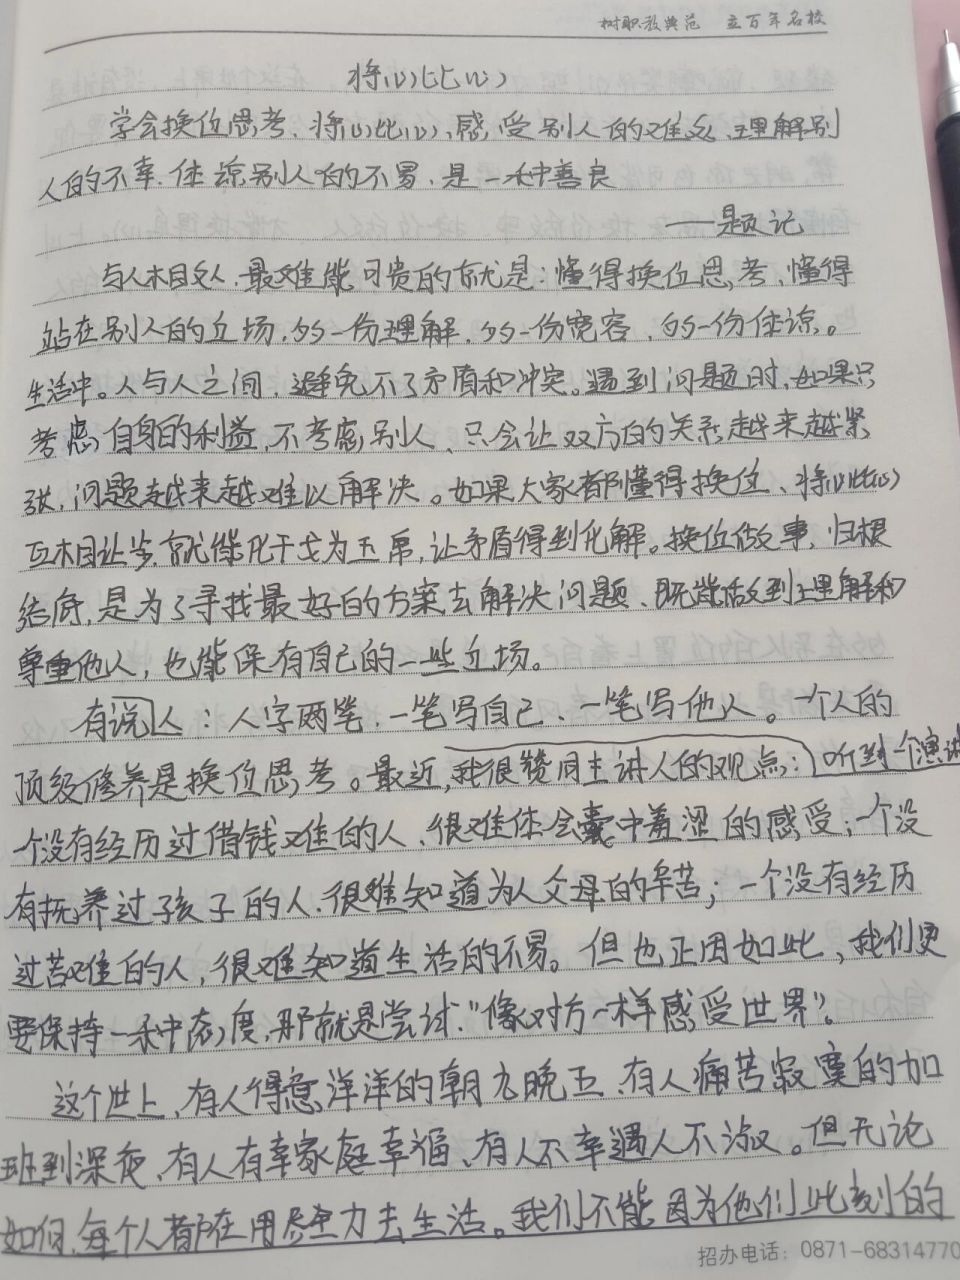 树职教典范 立百年名校
将心比心
学会换位思考、将心比心、感受别人的难处、理解别
人的不幸、体谅别人的不易、是一种善良
——题记
与人相处、最难能可贵的就是：懂得换位思考、懂得
站在别人的立场，多一份理解，多一份宽容，多一份体谅。
生活中。人与人之间，避免不了矛盾和冲突。遇到问题时，如果只
考虑自身的利益，不考虑别人、只会让双方的关系越来越紧
张，问题越来越难以解决。如果大家都懂得换位、将心比心
互相让步，就能化干戈为玉帛，让矛盾得到化解。换位做事，归根
结底，是为了寻找最好的方案去解决问题、既能做到理解和
尊重他人，也能保有自己的一些立场。
有说人：人字两笔，一笔写自己、一笔写他人。一个人的
顶级修养是换位思考。最近，我很赞同主讲人的观点：听到一个演讲
一个没有经历过借钱难的人、很难体会囊中羞涩的感受；一个没
有抚养过孩子的人、很难知道为人父母的辛苦；一个没有经历
过苦难的人，很难知道生活的不易。但也正因如此，我们更
要保持一种态度，那就是尝试“像对方一样感受世界”。
这个世上、有人得意洋洋的朝九晚五、有人痛苦寂寞的加
班到深夜、有人有幸家庭幸福、有人不幸遇人不淑。但无论
如何，每个人都在用尽全力去生活。我们不能因为他们此刻的
招办电话：0871-68314770